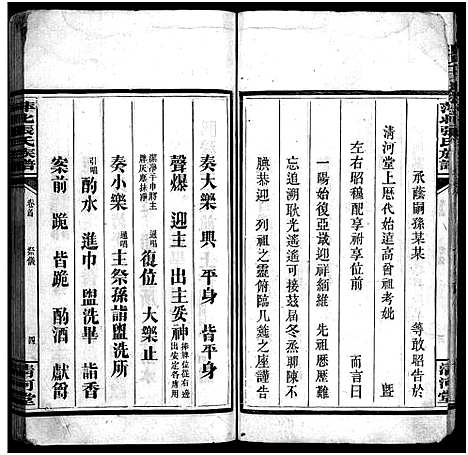 萍北張氏族譜
承蔭嗣孫某某 等敢昭告於
清河堂上歷代始遠高曾祖考妣 曁
左右昭穆配享祔享位前 而言曰
一陽始復亞歲迎祥緬維 先祖時增感傷
追水溯 耿光遙遙可接茲屆冬烝聊陳不
腆恭迎 列祖之靈俯臨几筵之座謹告
清河堂
奏大樂 興 平身 皆平身
聲爆 迎主 出主妥神 捧神位從右邊出安定各席用
潔淨手巾將主牌灰塵抹淨 通唱 復位 大樂止
奏小樂 通唱 主祭孫詣盥洗所
引唱 酌水 進巾 盥洗畢 詣香
案前 跪 皆跪 酌酒 獻爵
萍北張氏族譜
卷首 祭儀 四
清河堂